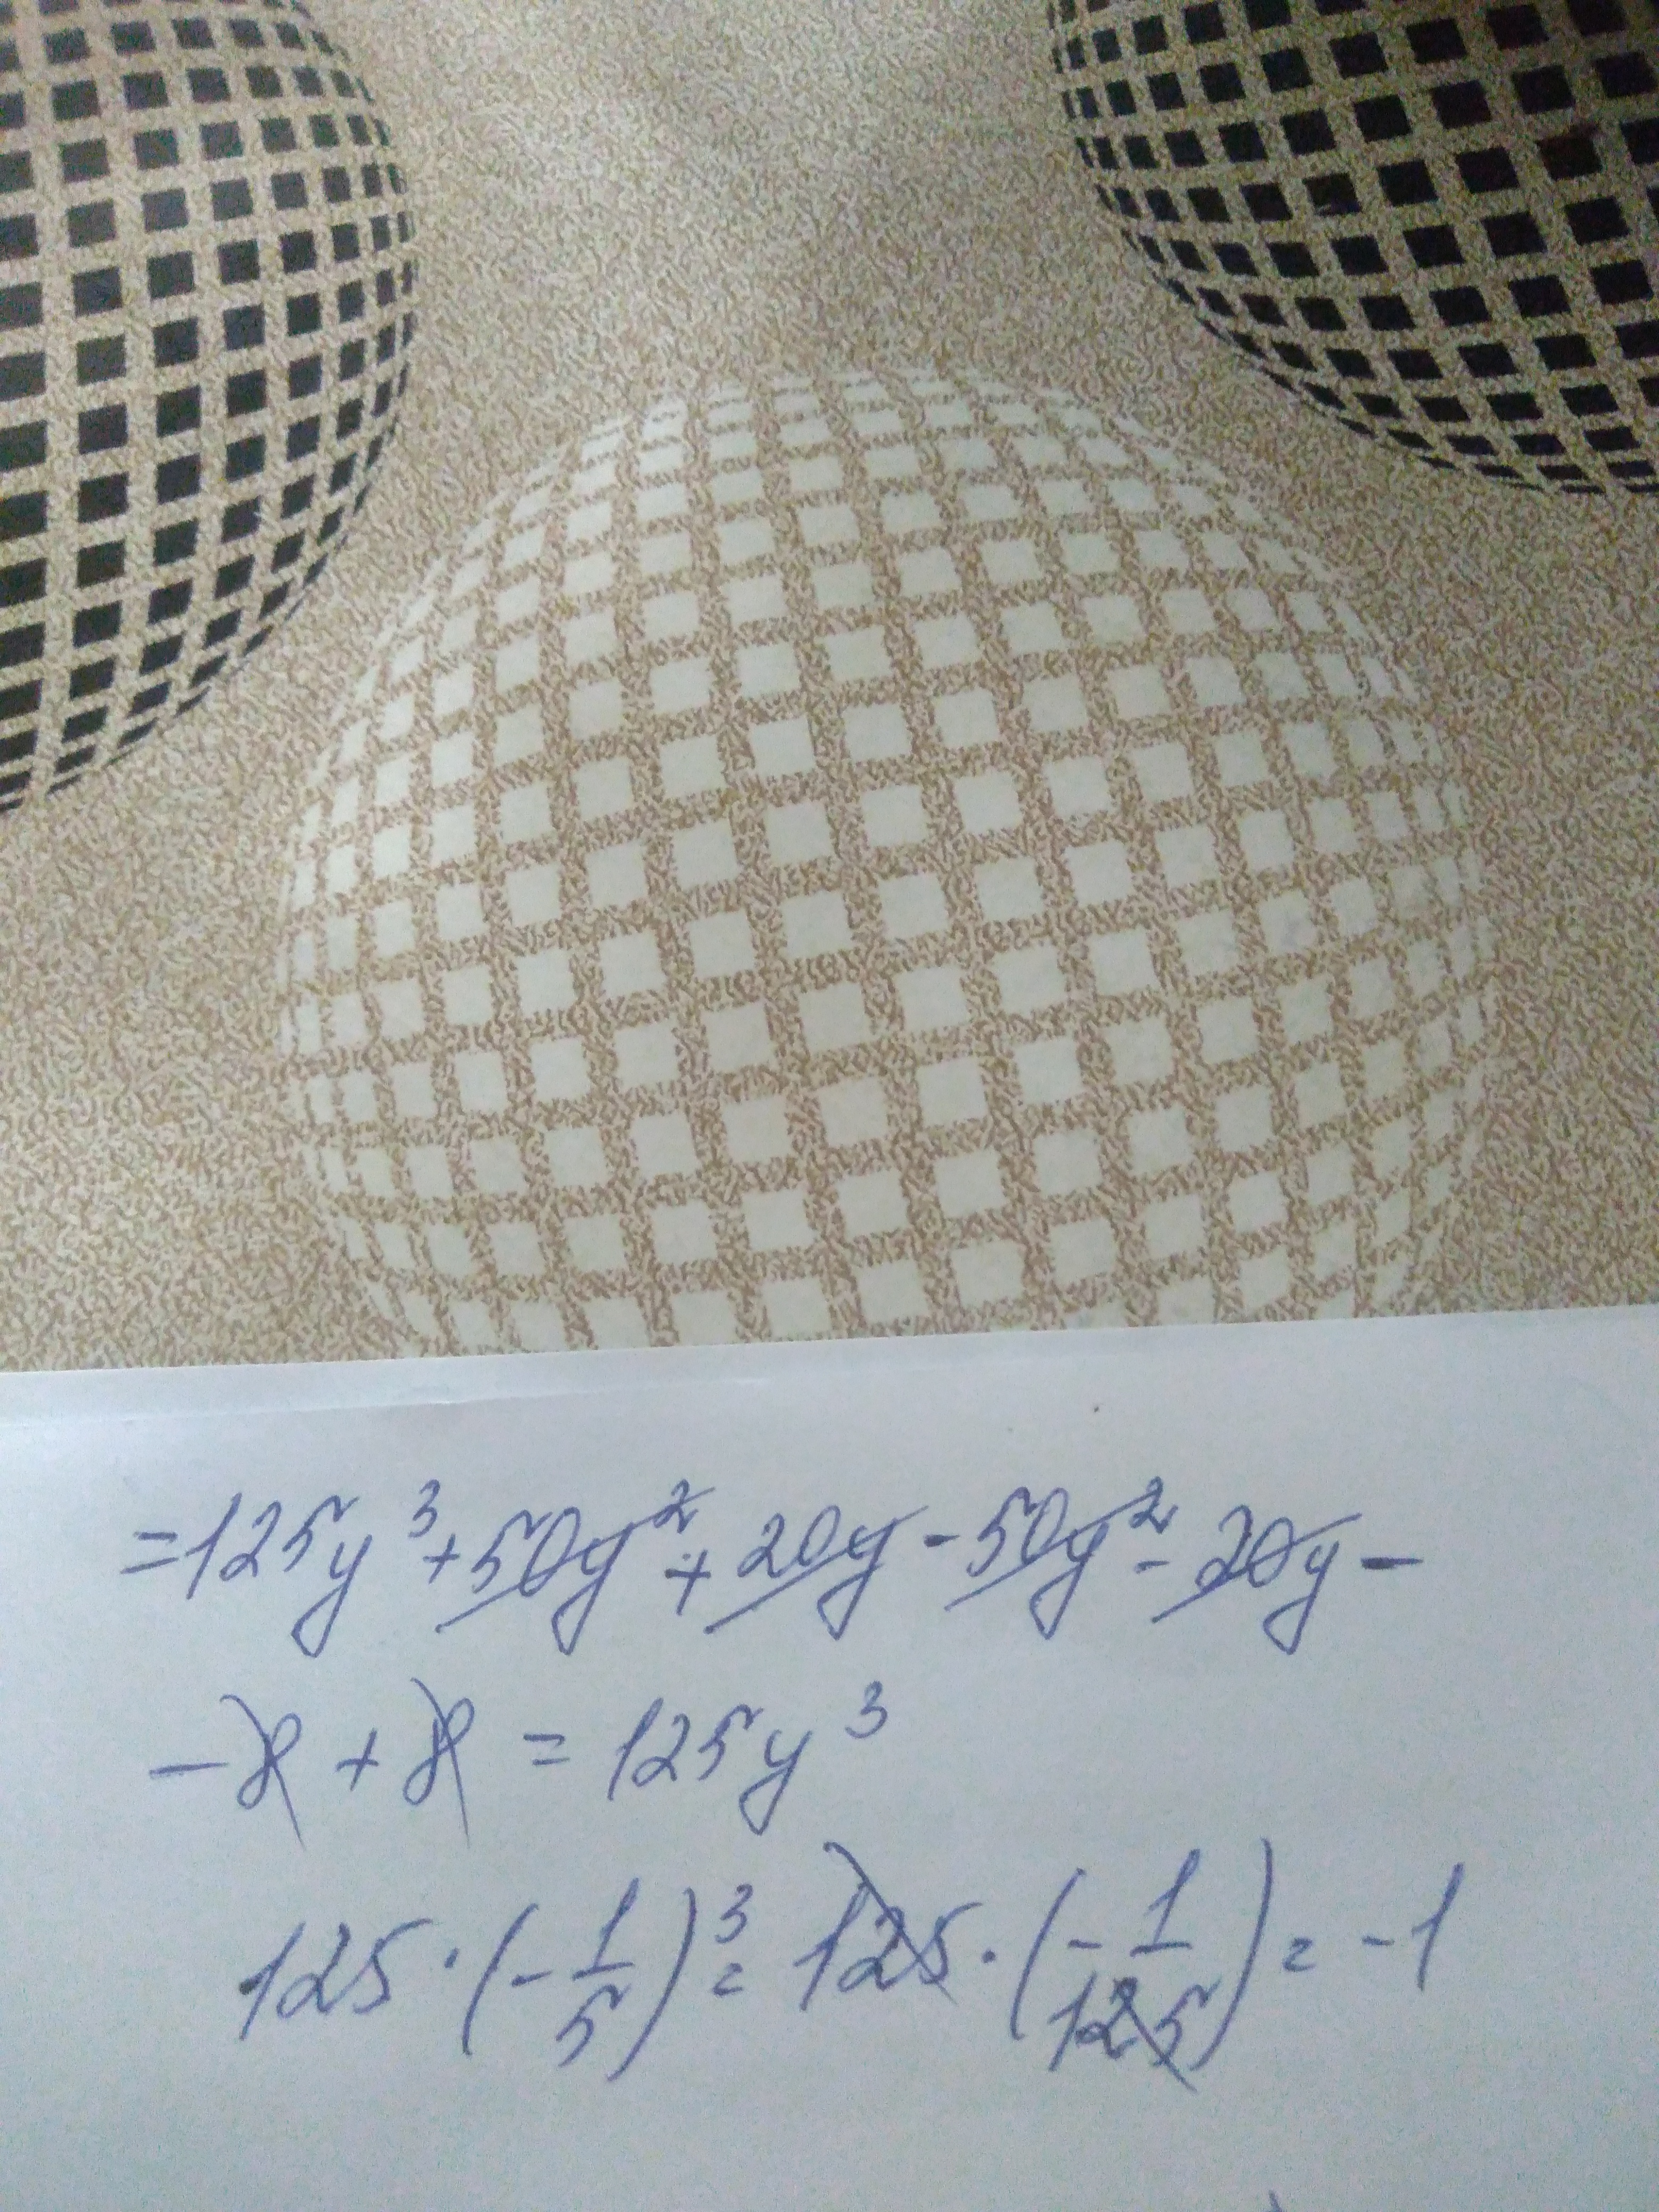 =125y³+50y²+20y-50y²-20y-
-8+8=125y³
125·(-1/5)³=125·(-1/125)=-1